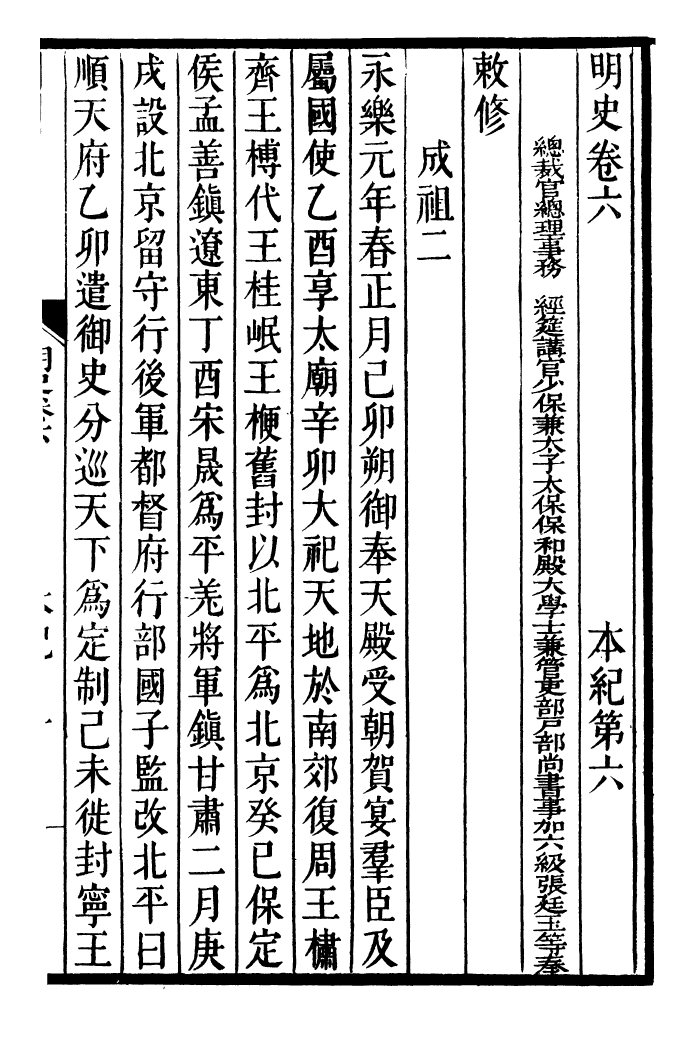 明史卷六　本紀第六
總裁官總理事務　經筵講官少保兼太子太保保和殿大學士兼管吏部戶部尚書事加六級張廷玉等奉
敕修
成祖二
永樂元年春正月己卯朔御奉天殿受朝賀宴羣臣及
屬國使乙酉享太廟辛卯大祀天地於南郊復周王橚
齊王榑代王桂岷王楩舊封以北平爲北京癸巳保定
侯孟善鎭遼東丁酉宋晟爲平羌將軍鎭甘肅二月庚
戌設北京留守行後軍都督府行部國子監改北平曰
順天府乙卯遣御史分巡天下爲定制己未徙封寧王